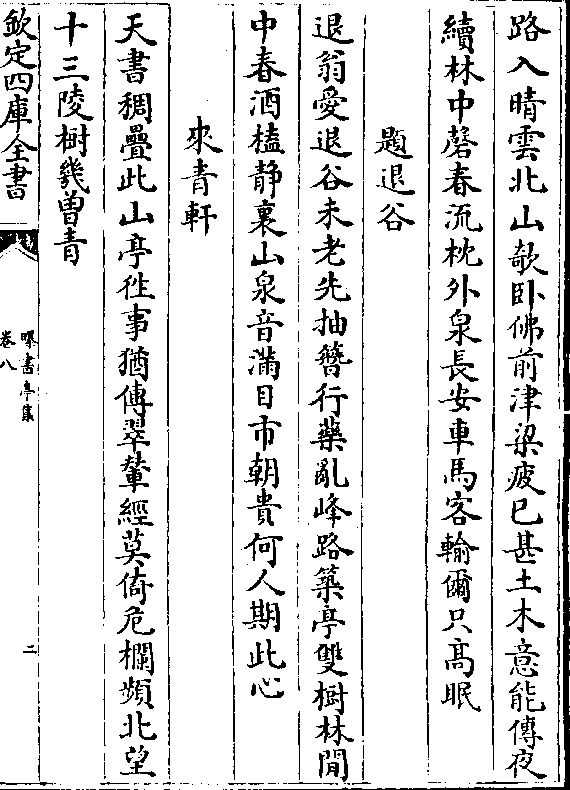 路入晴雲北山欹卧佛前津梁疲已甚土木意能傳夜
續林中磬春流枕外泉長安車馬客輸爾只髙眠
題退谷
退翁愛退谷未老先抽簪行藥亂峰路築亭雙樹林閒
中春酒榼静裏山泉音滿目市朝貴何人期此心
來青軒
天書稠疊此山亭徃事猶傳翠輦經莫倚危欄頻北望
十三陵樹幾曾青
欽定四庫全書
曝書亭集
卷八
二